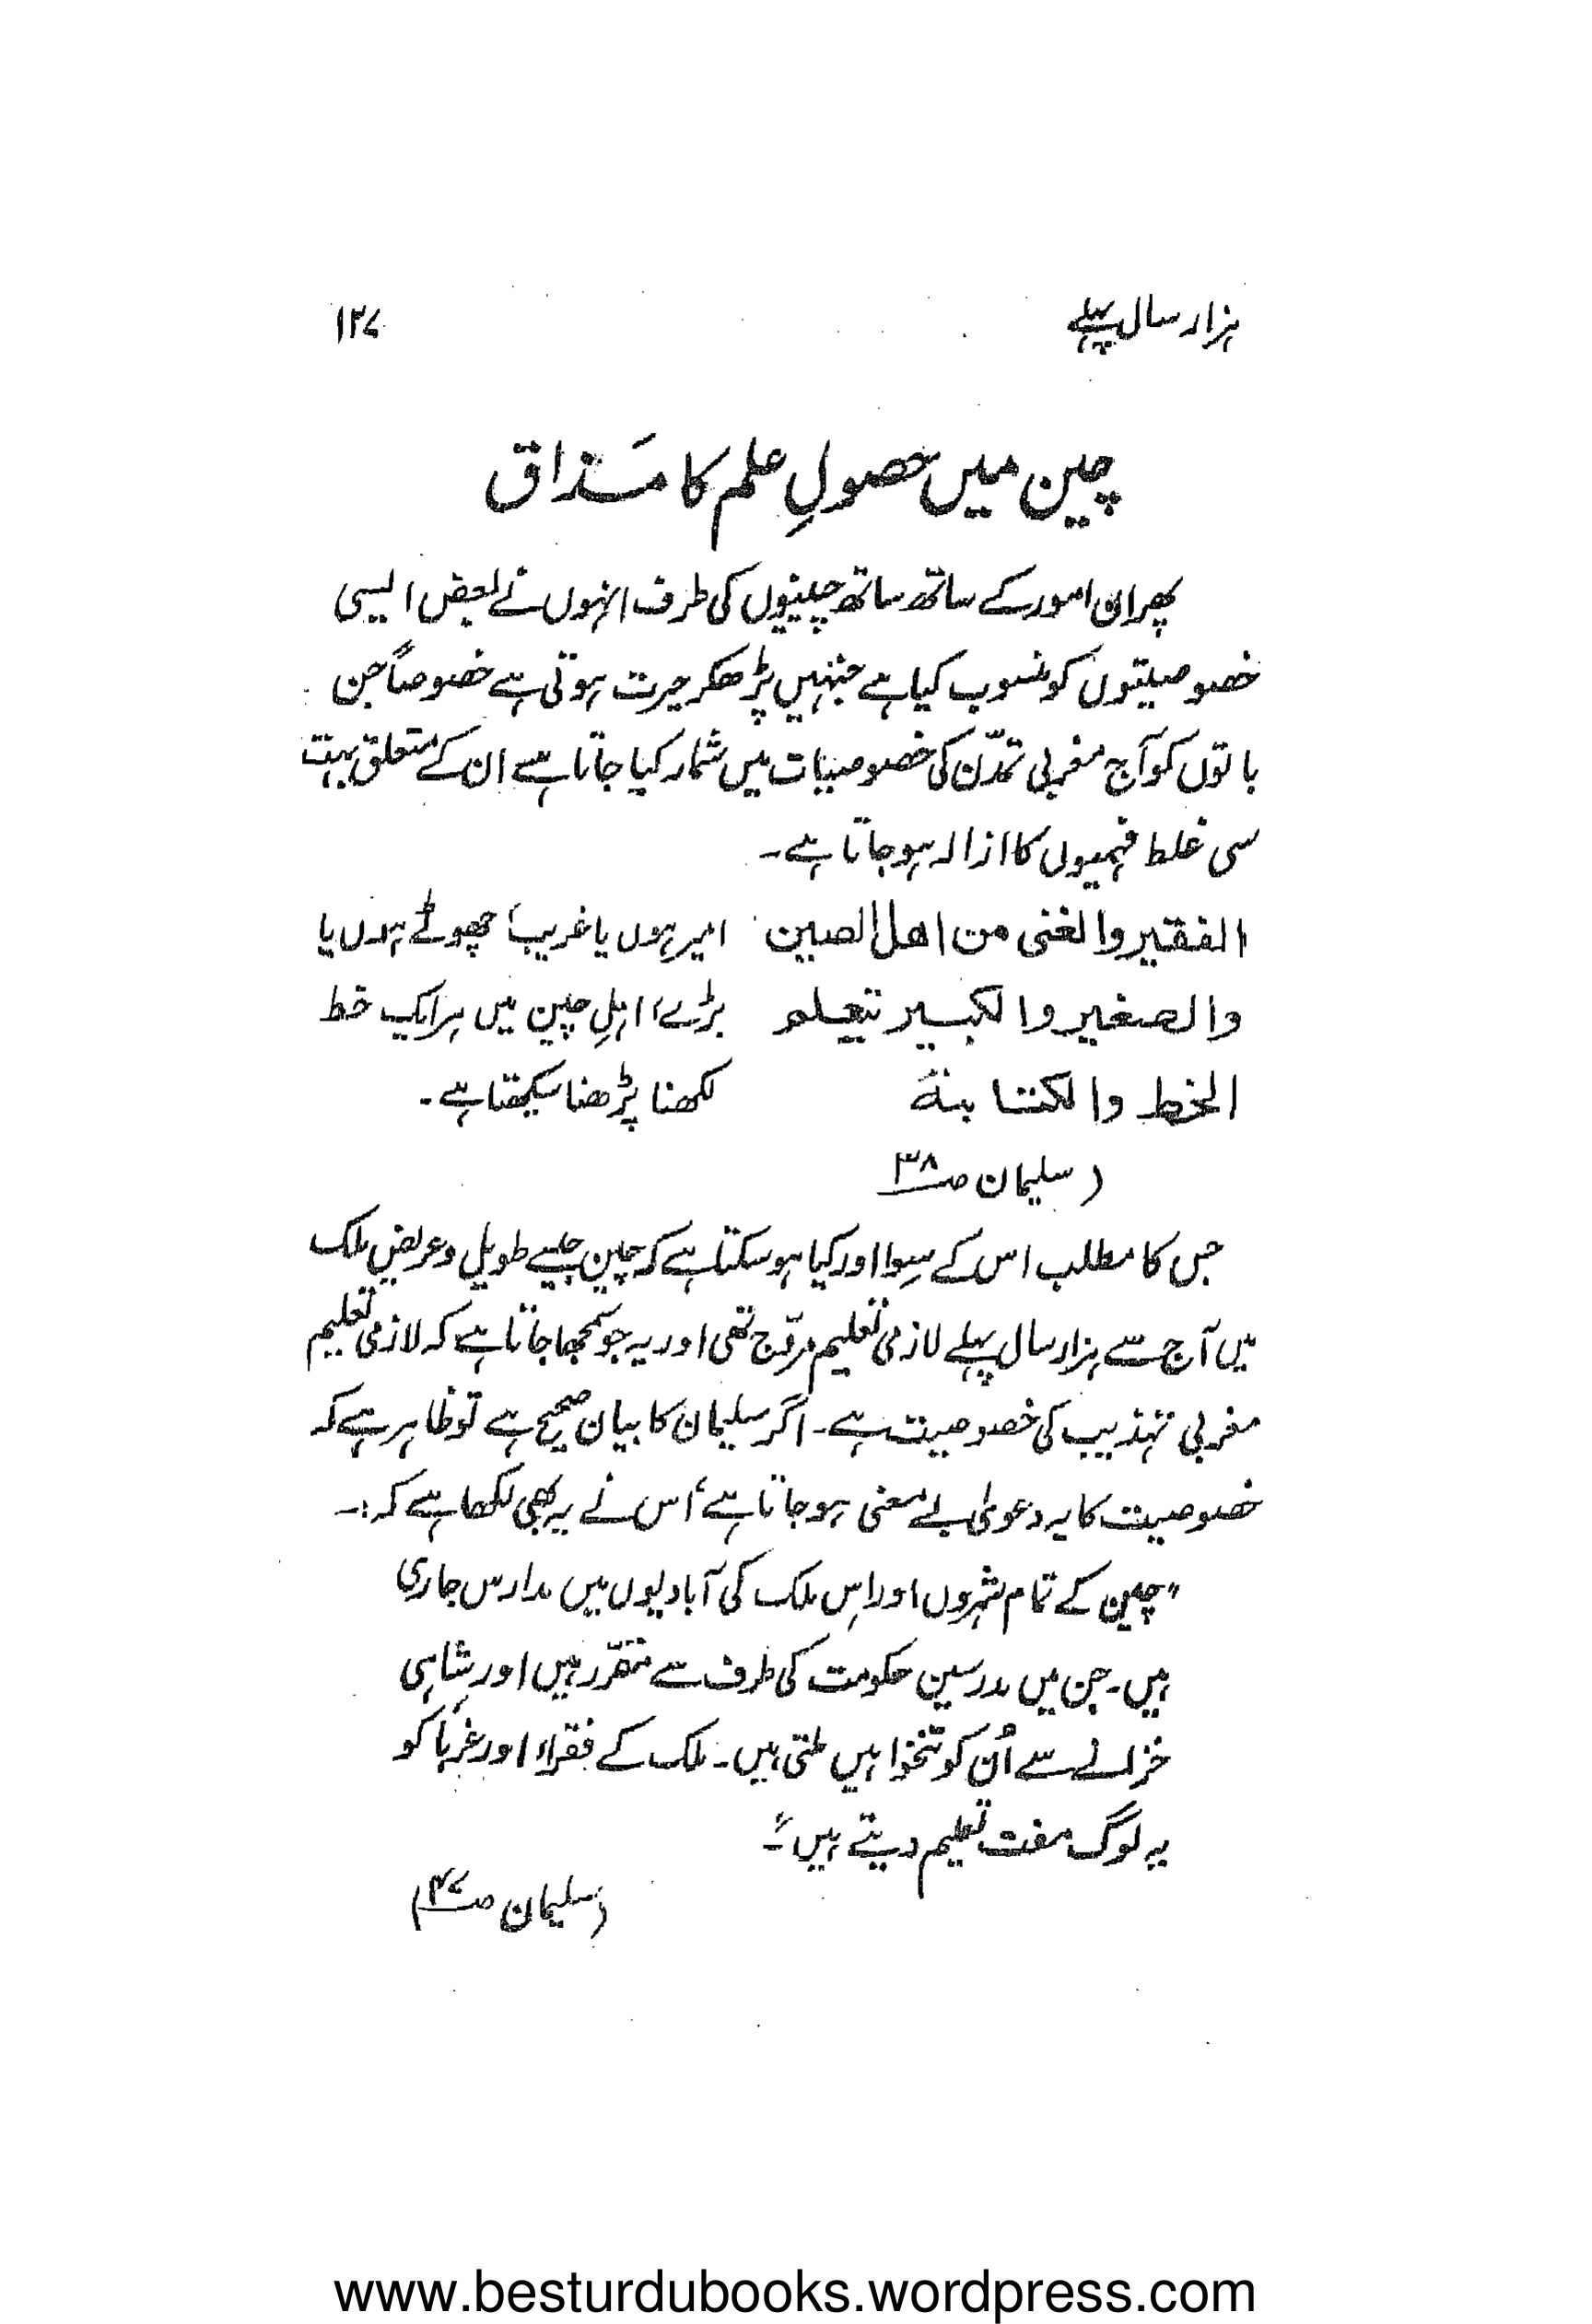 ہزار سال پہلے ۱۲۷
چین میں حصولِ علم کا مَذاق
پھر ان امور کے ساتھ ساتھ چینیوں کی طرف انہوں نے بعض ایسی
خصوصیتوں کو منسوب کیا ہے جنہیں پڑھکر حیرت ہوتی ہے خصوصاً جن
باتوں کو آج مغربی تمدّن کی خصوصیات میں شمار کیا جاتا ہے ان کے متعلق بہت
سی غلط فہمیوں کا ازالہ ہو جاتا ہے۔
الفقیر والغنی من اھل الصین امیر ہوں یا غریب، چھوٹے ہوں یا
والصغیر والکبیر یتعلم بڑے، اہلِ چین میں ہر ایک خط
الخط والکتابۃ لکھنا پڑھنا سیکھتا ہے۔
(سلیمان صـ ۳۸
جس کا مطلب اس کے سِوا اور کیا ہو سکتا ہے کہ چین جیسے طویل و عریض ملک
میں آج سے ہزار سال پہلے لازمی تعلیم مروّج تھی اور یہ جو سمجھا جاتا ہے کہ لازمی تعلیم
مغربی تہذیب کی خصوصیت ہے۔ اگر سلیمان کا بیان صحیح ہے تو ظاہر ہے کہ
خصوصیت کا یہ دعویٰ بے معنی ہو جاتا ہے، اُس نے یہ بھی لکھا ہے کہ:۔
"چین کے تمام شہروں اور اِس ملک کی آبادیوں میں مدارس جاری
ہیں۔ جن میں مدرسین حکومت کی طرف سے مقرّر ہیں اور شاہی
خزانے سے اُن کو تنخواہیں ملتی ہیں۔ ملک کے فقراء اور غربأ کو
یہ لوگ مفت تعلیم دیتے ہیں"۔
(سلیمان صـ ۴۷)
www.besturdubooks.wordpress.com